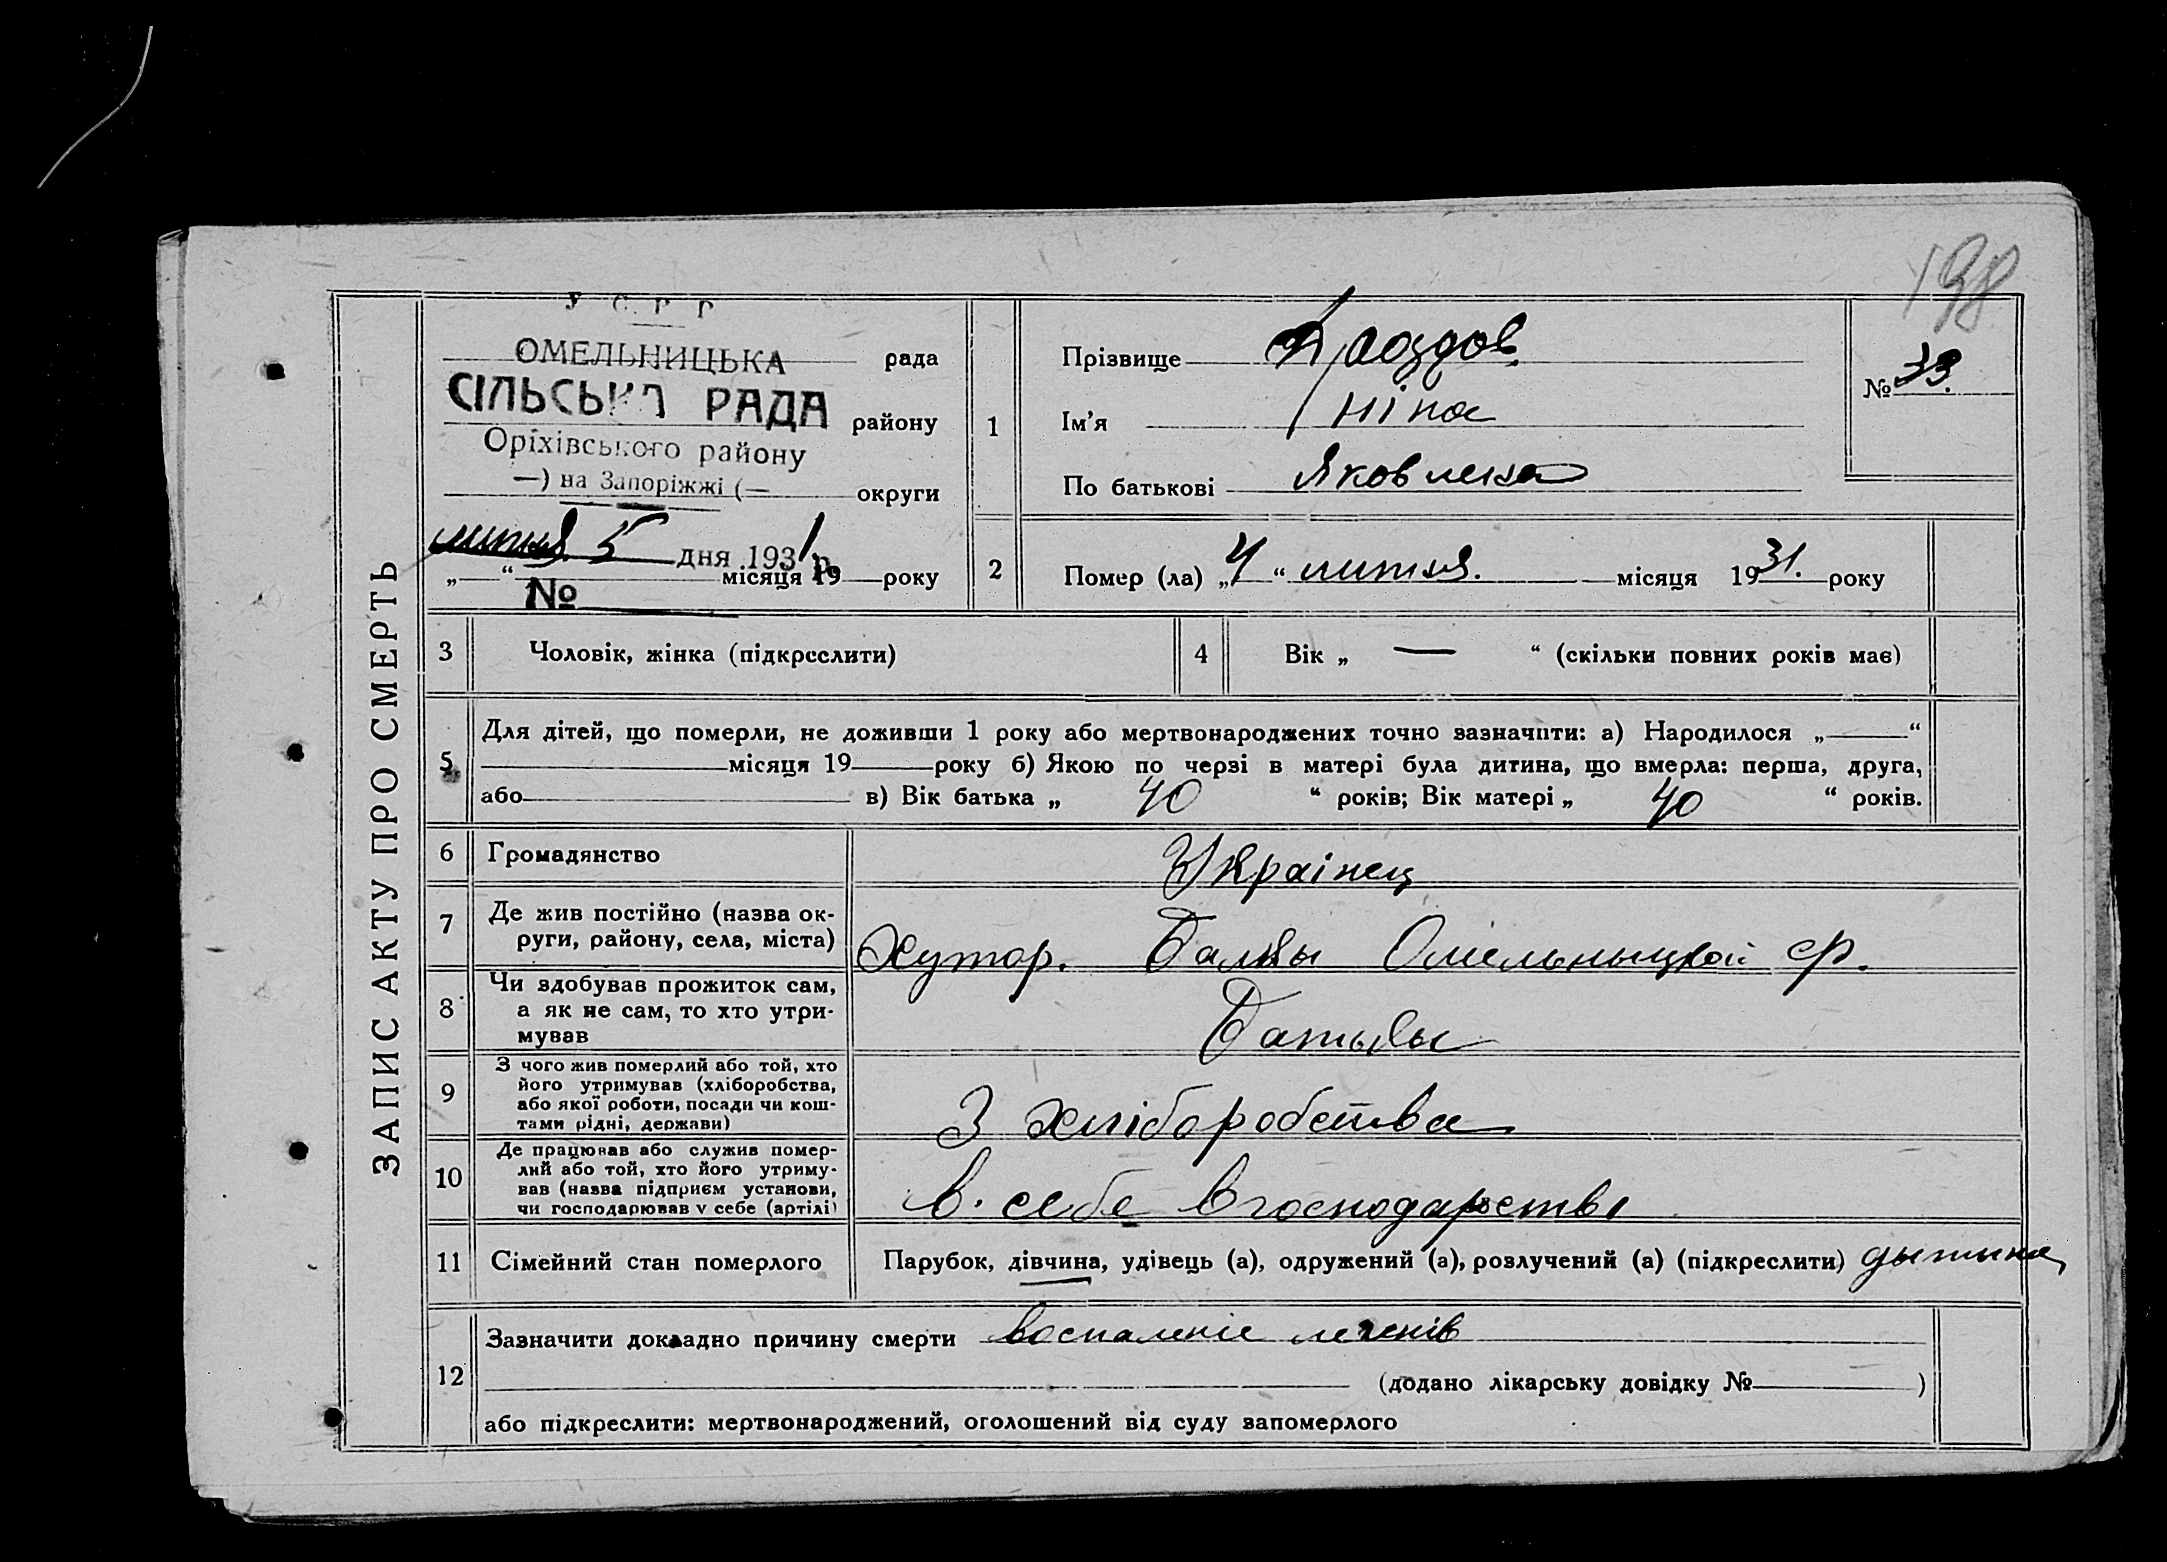 198
У С Р Р
ОМЕЛЬНИЦЬКА рада
СІЛЬСЬКА РАДА району
Оріхівського району
—) на Запоріжжі (— округи
липня 5 дня 1931 р.
„ “ місяця 19 року
№
ЗАПИС АКТУ ПРО СМЕРТЬ
1
Прізвище Дроздов
Ім'я Ніна
По батькові Яковлена
№ 33.
2 Помер (ла) „4“ липня. місяця 1931. року
3 Чоловік, жінка (підкреслити)
4 Вік „ — “ (скільки повних років має)
5 Для дітей, що померли, не доживши 1 року або мертвонароджених точно зазначити: а) Народилося „ “
місяця 19 року б) Якою по черзі в матері була дитина, що вмерла: перша, друга,
або в) Вік батька „ 40 “ років; Вік матері „ 40 “ років.
6 Громадянство Украінец
7 Де жив постійно (назва ок-
руги, району, села, міста) Хутор. Балкы Омельныцкой ср.
8 Чи здобував прожиток сам,
а як не сам, то хто утри-
мував Батькы
9 З чого жив померлий або той, хто
його утримував (хліборобства,
або якої роботи, посади чи кош-
тами рідні, держави) З хліборобства
10 Де працював або служив помер-
лий або той, хто його утриму-
вав (назва підприєм установи,
чи господарював у себе (артілі) в. себе в господарстві
11 Сімейний стан померлого Парубок, дівчина, удівець (а), одружений (а), розлучений (а) (підкреслити) дытына
12 Зазначити докладно причину смерти воспаленіе легенів
(додано лікарську довідку № )
або підкреслити: мертвонароджений, оголошений від суду запомерлого